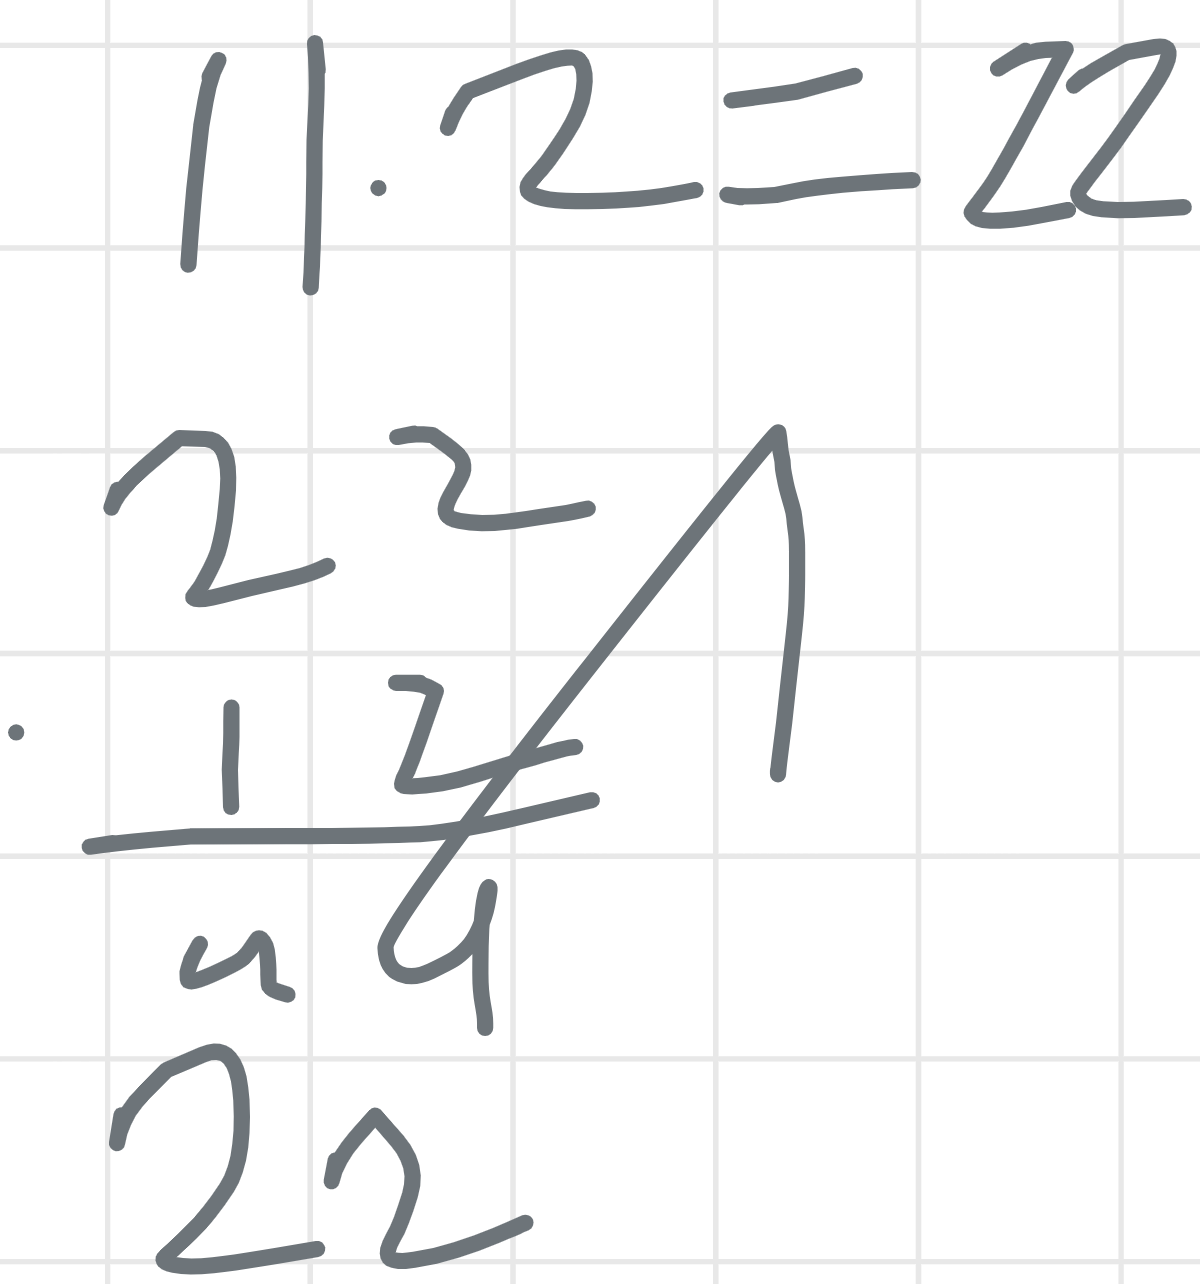 11.2=22
22
.12
44
22